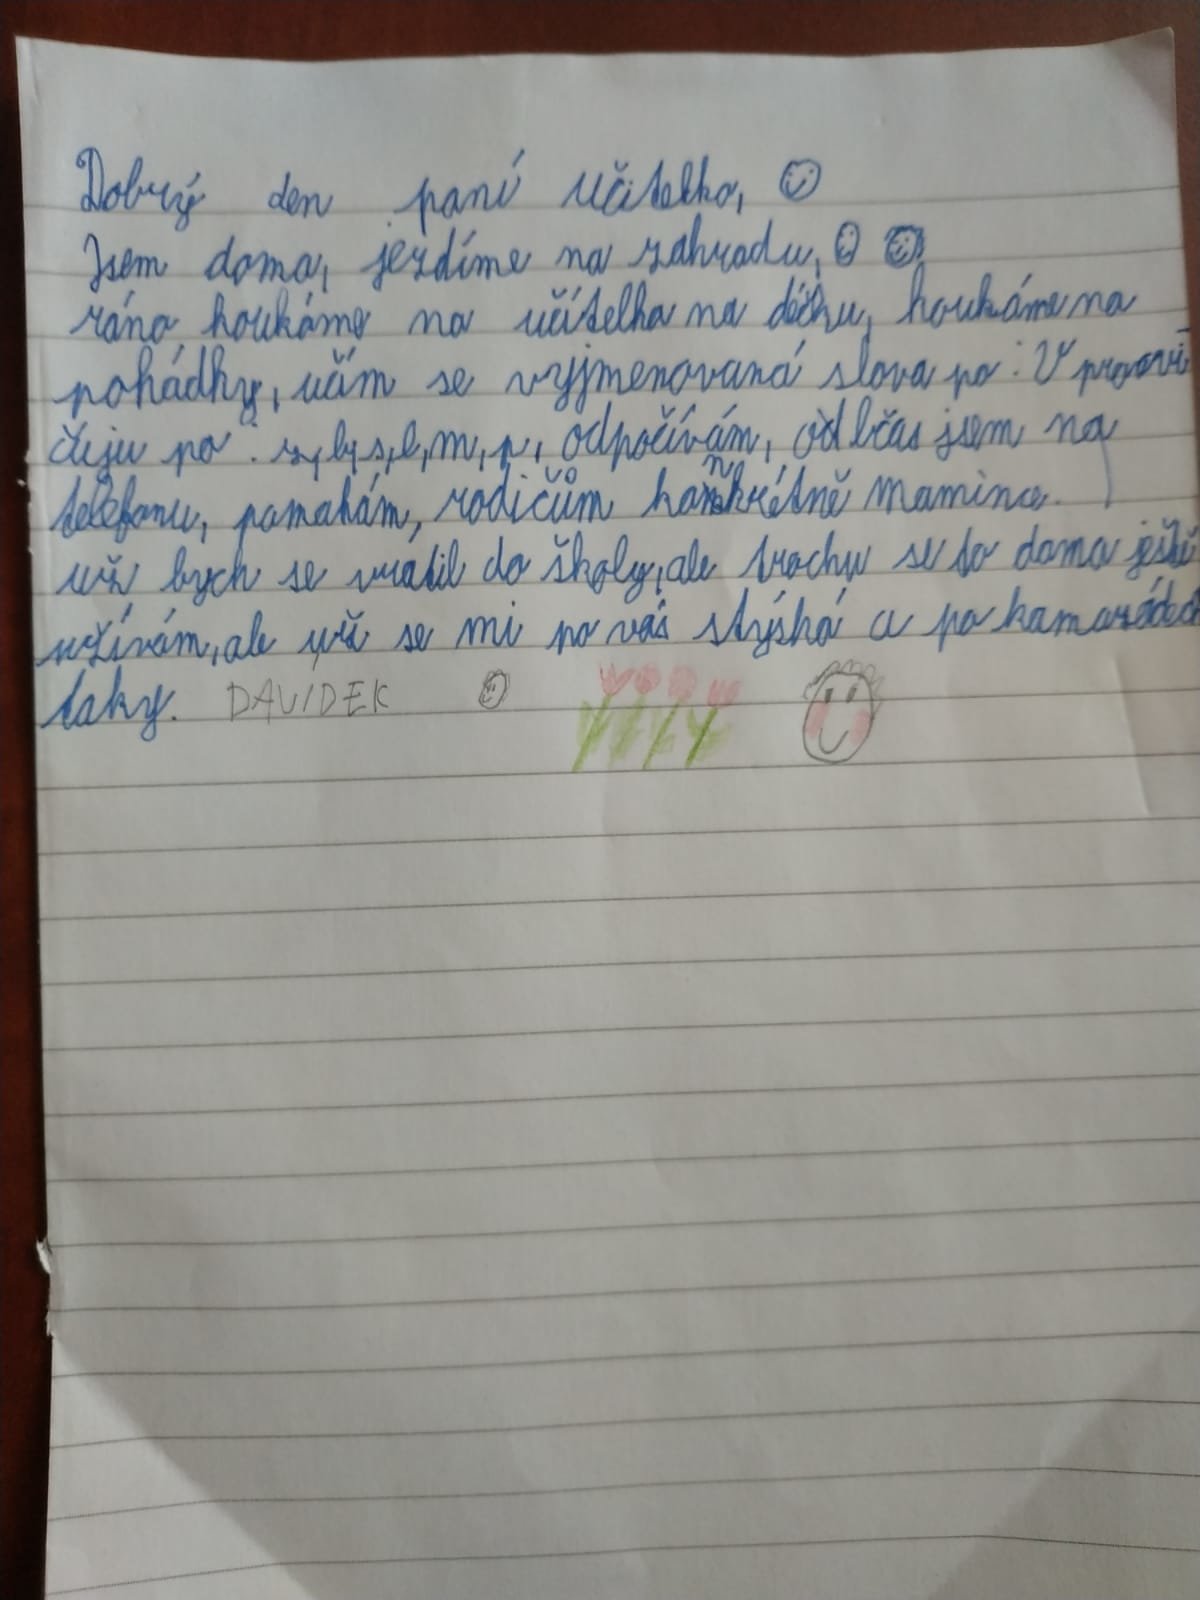 Dobrý den paní učitelko,
Jsem doma, jezdíme na zahradu,
ráno koukáme na učítelka na déčku, koukáme na
pohádky, učím se vyjmenovaná slova po: V procvi
čuju po: z, b, s, l, m, p, odpočívám, občas jsem na
telefonu, pomahám, rodičům konkrétně mamince.
už bych se vratil do školy, ale trochu se to doma ještě
užívám, ale už se mi po vás stýská a po kamarádech
taky. DAVIDEK